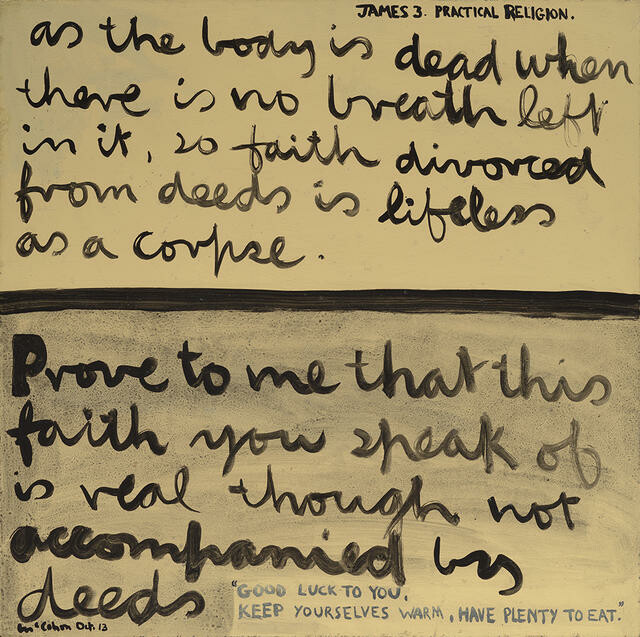 JAMES 3. PRACTICAL RELIGION.
as the body is dead when
there is no breath left
in it, so faith divorced
from deeds is lifeless
as a corpse.
Prove to me that this
faith you speak of
is real though not
accompanied by
deeds
"GOOD LUCK TO YOU,
KEEP YOURSELVES WARM, HAVE PLENTY TO EAT."
McCahon Oct. 13